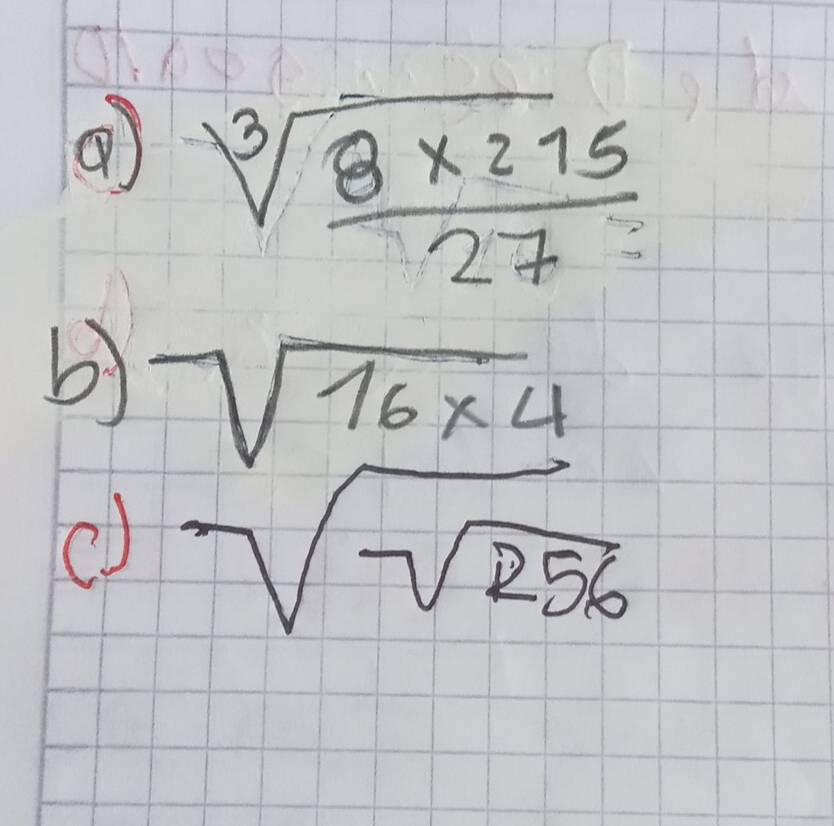 a) ∛(8 × 215 / 27) =
b) √(16 × 4)
c) √√256